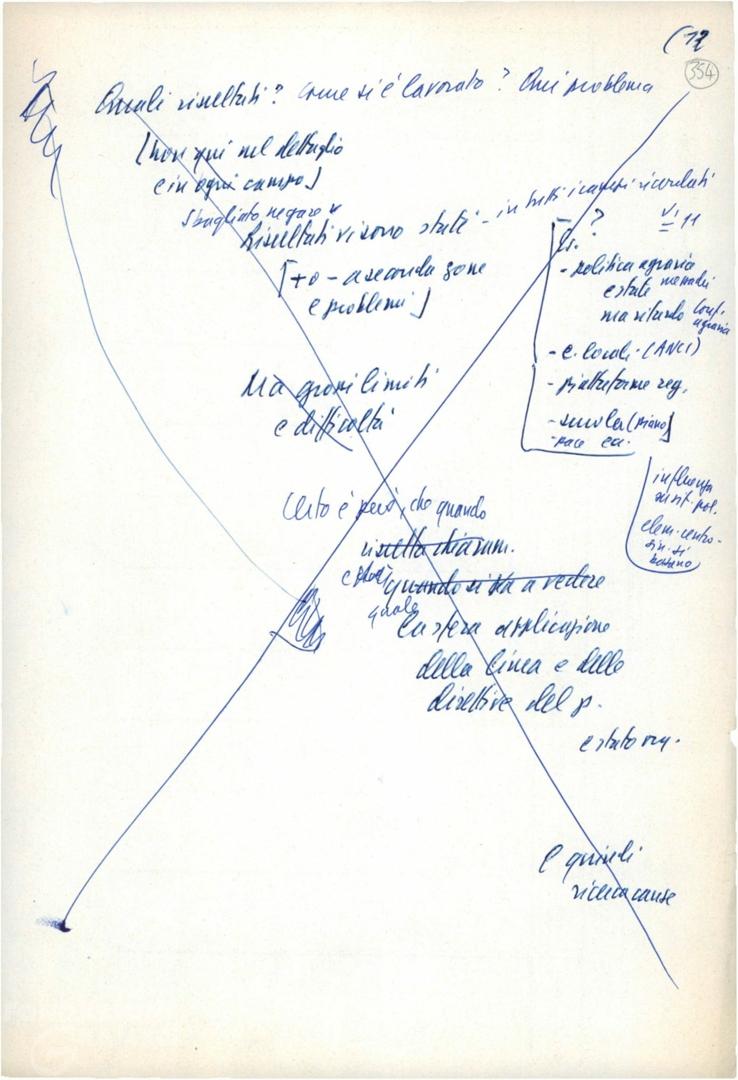 (12
354
Quali risultati? Come si è lavorato? Qui problema
[non qui nel dettaglio
e in ogni campo]
Sbagliato negare
Risultati vi sono stati - in tutti i campi ricordati
[+ o - a seconda zone
e problemi]
Es. ?
- politica agraria
estate
ma ritardo Conf.
agraria
- e. locali (ANCI)
- piattaforme reg.
- scuola (piano)
- pace ecc.
influenza
elem. centro-
sin. si
Ma gravi limiti
e difficoltà
Certo è però, che quando
risulta chiaram.
quando si va a vedere
quale
la stessa applicazione
della linea e delle
direttive del p.
è stata
E quindi
ricerca cause